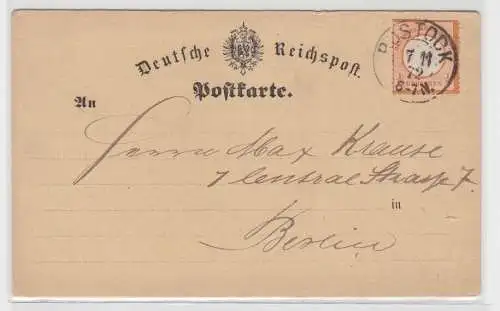 Deutsche Reichspost.
Postkarte.
ROSTOCK
7 11
72
6-7N.
An
Herrn Max Krause
7 Central Strasse 7.
in
Berlin